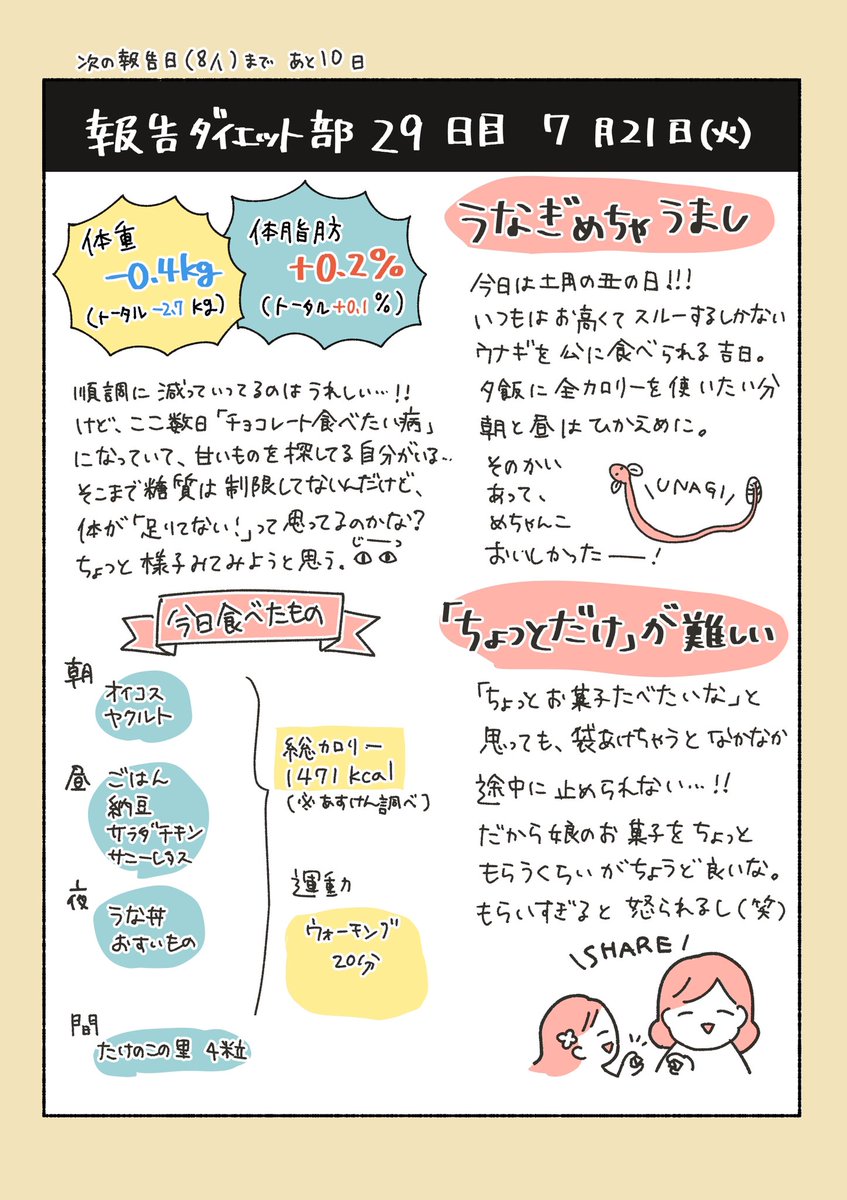 次の報告日(8/1)まで あと10日
報告ダイエット部 29日目 7月21日(火)
体重
-0.4kg
(トータル -2.7kg)
体脂肪
+0.2%
(トータル +0.1%)
順調に減っていってるのはうれしい…!!
けど、ここ数日「チョコレート食べたい病」
になっていて、甘いものを探してる自分がいる…
そこまで糖質は制限してないんだけど、
体が「足りてない!」って思ってるのかな?
ちょっと様子みてみようと思う。
じーっ
今日食べたもの
朝
オイコス
ヤクルト
昼
ごはん
納豆
サラダチキン
サニーレタス
夜
うな丼
おすいもの
間
たけのこの里 4粒
総カロリー
1471kcal
(※あすけん調べ)
運動
ウォーキング
20分
うなぎめちゃうまし
今日は土用の丑の日!!!
いつもはお高くてスルーするしかない
ウナギを公に食べられる吉日。
夕飯に全カロリーを使いたい分
朝と昼はひかえめに。
そのかい
あって、
めちゃんこ
おいしかったー!
\UNAGI/
「ちょっとだけ」が難しい
「ちょっとお菓子たべたいな」と
思っても、袋あけちゃうとなかなか
途中に止められない…!!
だから娘のお菓子をちょっと
もらうくらいがちょうど良いな。
もらいすぎると怒られるし(笑)
\SHARE/